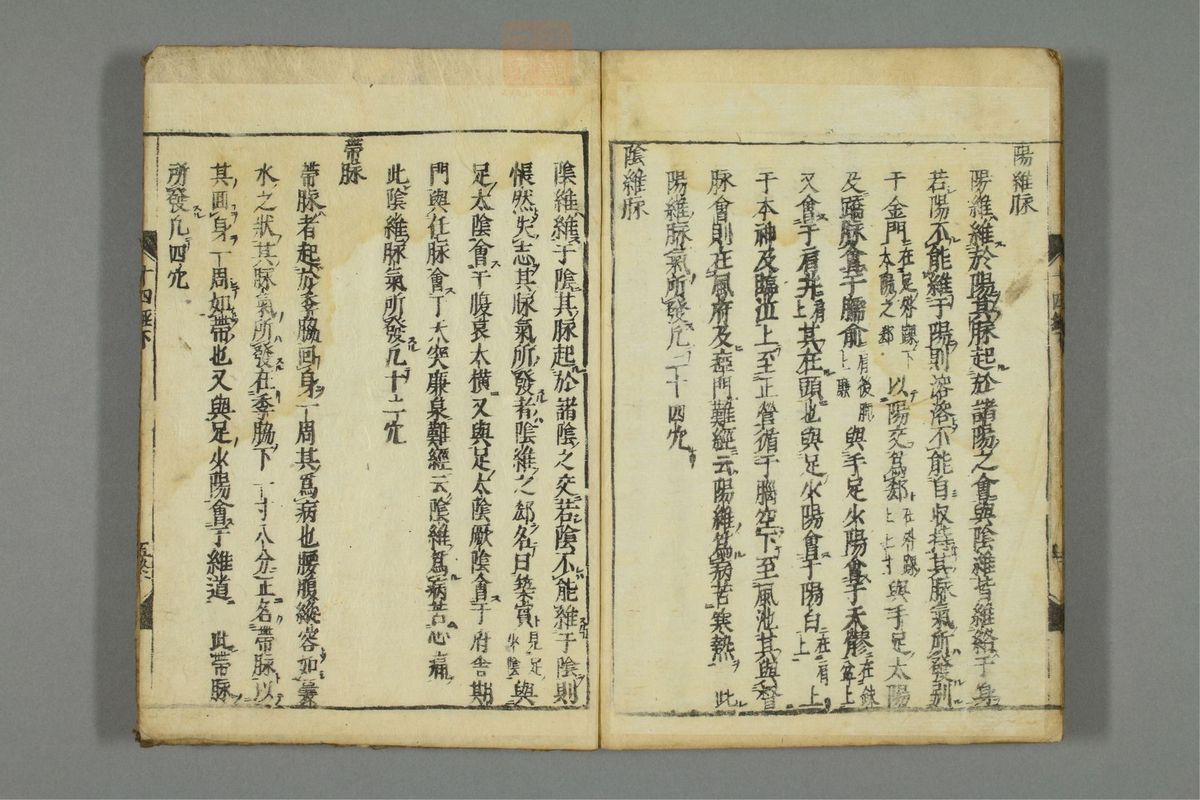 陽維脉
陽維維於陽其脉起於諸陽之會與陰維皆維絡于身
若陽不能維于陽則溶溶不能自收持其脉氣所發別
于金門在足外踝下太陽之郄以陽交爲郄在外踝上七寸與手足太陽
及蹻脉會于臑俞肩後胛上廉與手足少陽會于天髎在缺盆上
又會于肩井肩上其在頭也與足少陽會于陽白在眉上
于本神及臨泣上至正營循于腦空下至風池其與督
脉會則在風府及瘂門難經云陽維爲病苦寒熱此
陽維脉氣所發凡二十四穴
陰維脉
陰維維于陰其脉起於諸陰之交若陰不能維于陰則
悵然失志其脉氣所發者陰維之郄名曰築賓見足少陰與
足太陰會于腹哀大橫又與足太陰厥陰會于府舍期
門與任脉會于天突廉泉難經云陰維爲病苦心痛
此陰維脉氣所發凡十二穴
帶脉
帶脉者起於季脇回身一周其爲病也腰腹縱容如囊
水之狀其脉氣所發在季脇下一寸八分正名帶脉以
其回身一周如帶也又與足少陽會于維道此帶脉
所發凡四穴
十四經下